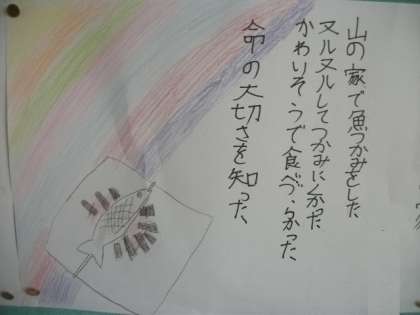 山の家で魚つかみをした
ヌルヌルしてつかみにくかった
かわいそうで食べづらかった、
命の大切さを知った、